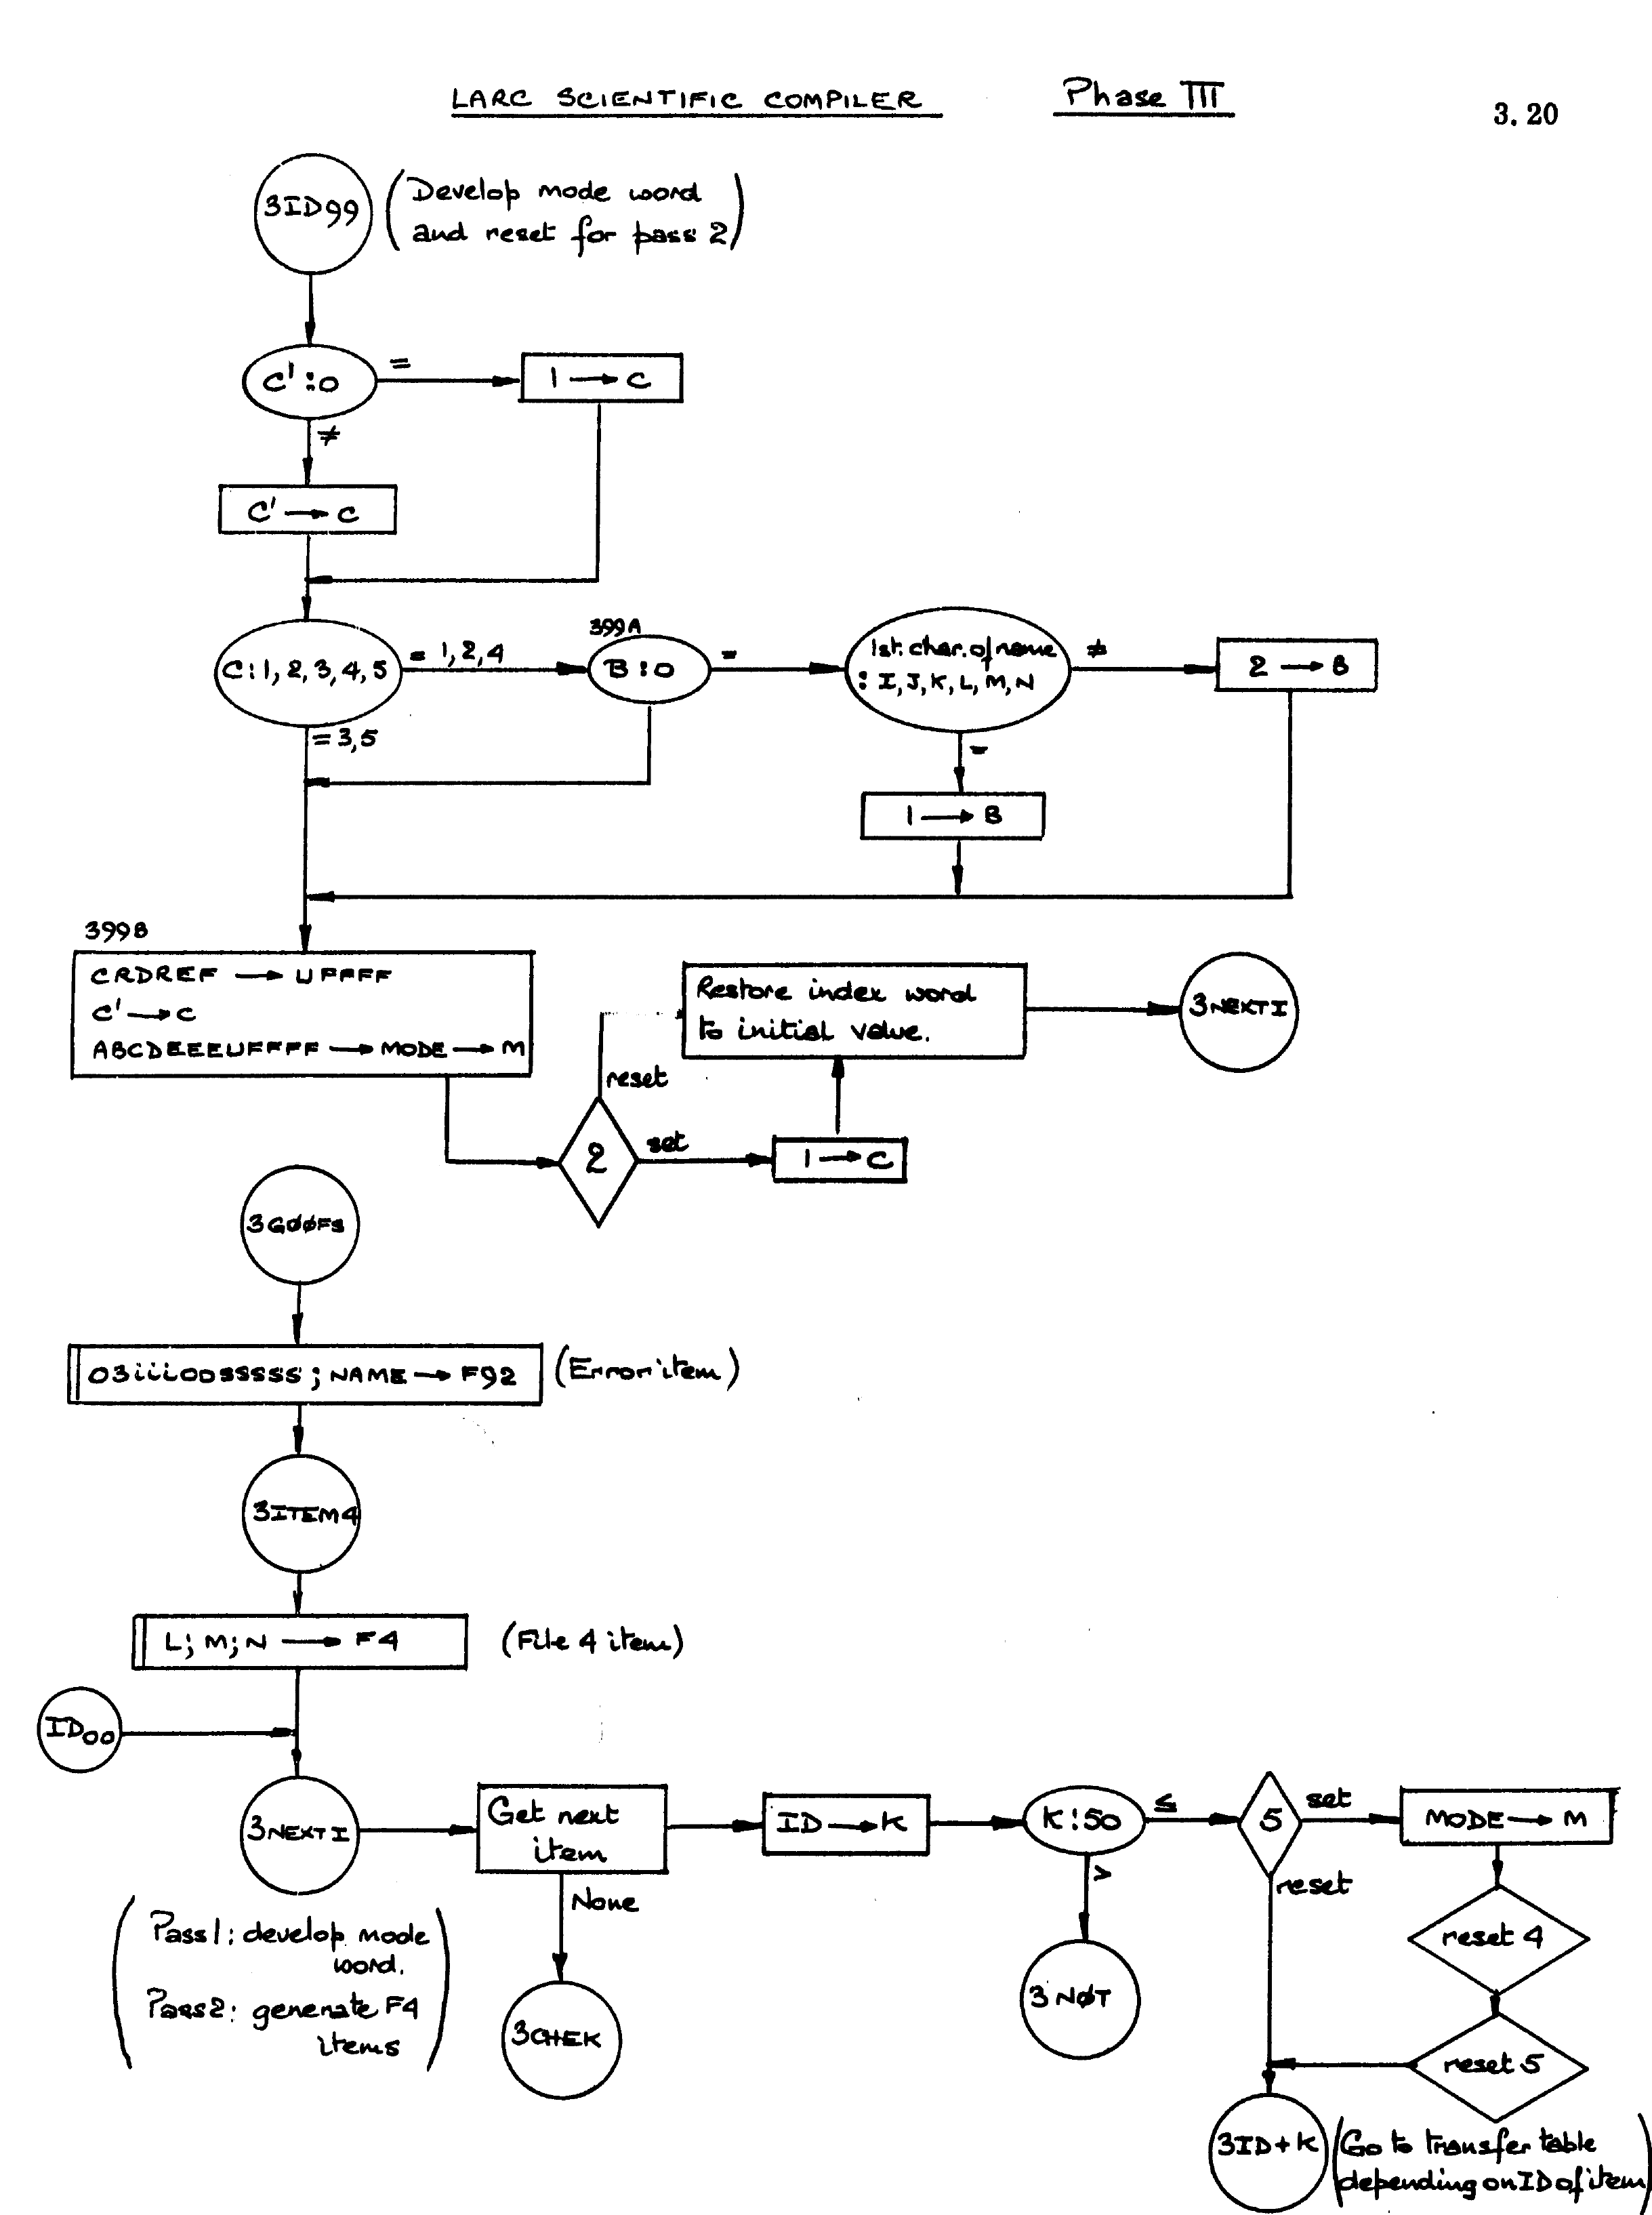 LARC SCIENTIFIC COMPILER Phase III
3.20
3ID99
(Develop mode word
and reset for pass 2)
C' : 0
=
1 → C
≠
C' → C
C : 1, 2, 3, 4, 5
= 1, 2, 4
= 3, 5
399A
B : 0
=
1st. char. of name
: I, J, K, L, M, N
≠
2 → B
=
1 → B
399B
CRDREF → UFFFF
C' → C
ABCDEEEUFFFF → MODE → M
Restore index word
to initial value.
3NEXTI
reset
2
set
1 → C
3GØØFS
03iiiooSSSSS ; NAME → F92
(Error item)
3ITEM4
L; M; N → F4
(File 4 item)
ID00
3NEXTI
Get next
item
ID → K
K : 50
≤
5
set
MODE → M
>
reset
None
reset 4
3NØT
(Pass 1: develop mode
word.
Pass 2: generate F4
items)
3CHEK
reset 5
3ID+K
(Go to transfer table
depending on ID of item)